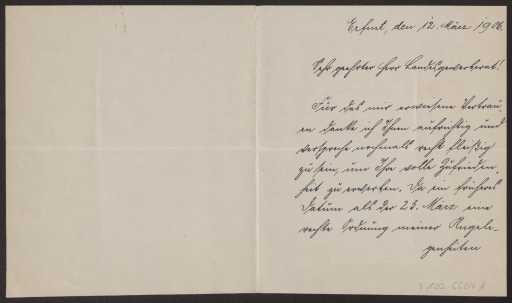 Erfurt, den 12. März 1906.
Sehr geehrter Herr Landesgewerberat!
Für das mir erwiesene Vertrau-
en danke ich Ihnen aufrichtig und
verspreche nochmals recht fleißig
zu sein, um Ihre volle Zufrieden-
heit zu erwerben. Da ein früheres
Datum als der 23. März eine
rechte Ordnung meiner Angele-
genheiten